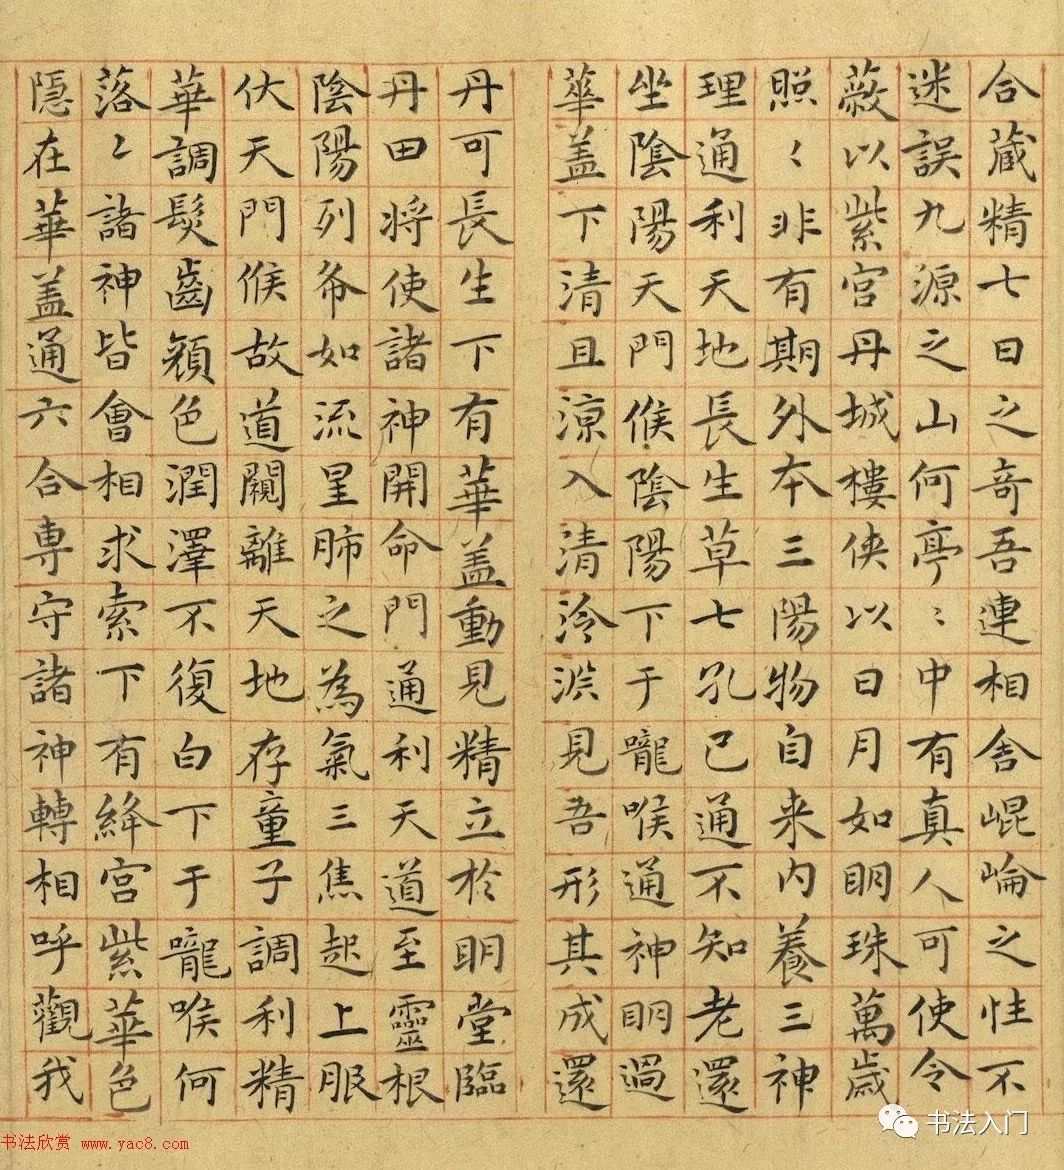 合藏精七日之奇吾連相舍崐崘之性不
迷誤九源之山何亭〻中有真人可使令
蔽以紫宮丹城樓俠以日月如明珠萬歲
照〻非有期外本三陽物自来内養三神
理通利天地長生草七孔已通不知老還
坐陰陽天門候陰陽下于嚨喉通神明過
華盖下清且涼入清泠淵見吾形其成還
丹可長生下有華盖動見精立於明堂臨
丹田将使諸神開命門通利天道至靈根
陰陽列布如流星肺之為氣三焦起上服
伏天門候故道闚離天地存童子調利精
華調髮齒顏色潤澤不復白下于嚨喉何
落〻諸神皆會相求索下有絳宮紫華色
隱在華盖通六合專守諸神轉相呼觀我
书法入门
书法欣赏 www.yac8.com